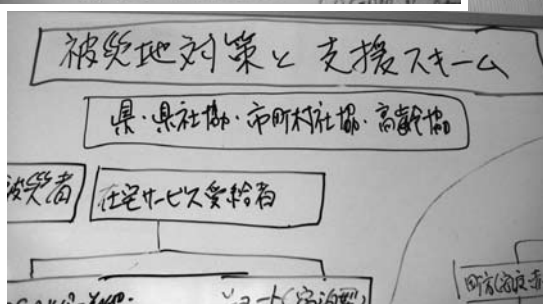 被災地対策と支援スキーム
県・県社協・市町村社協・高齢協
被災者
在宅サービス受給者
ショート(宿泊型)